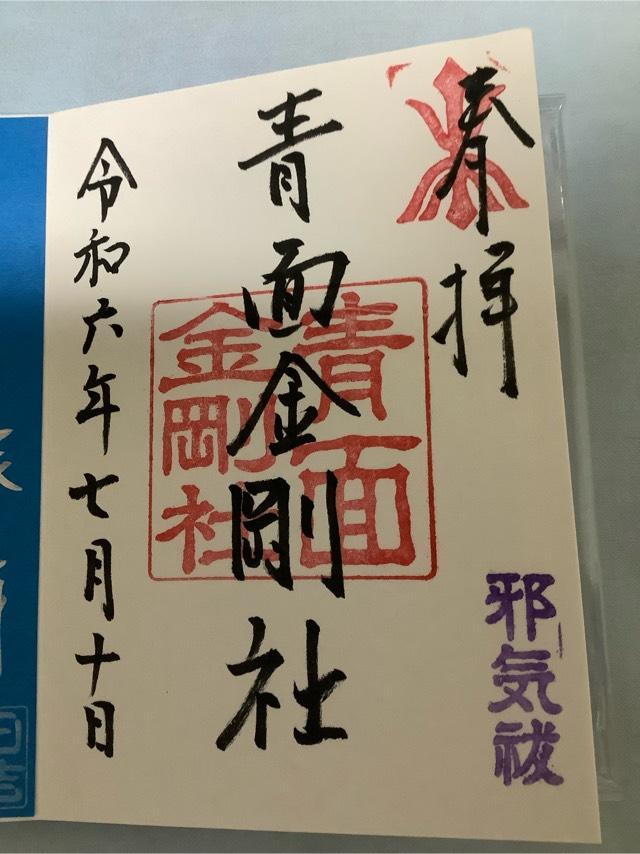 奉拝
邪気祓
青面金剛社
青面
金剛社
令和六年七月十日